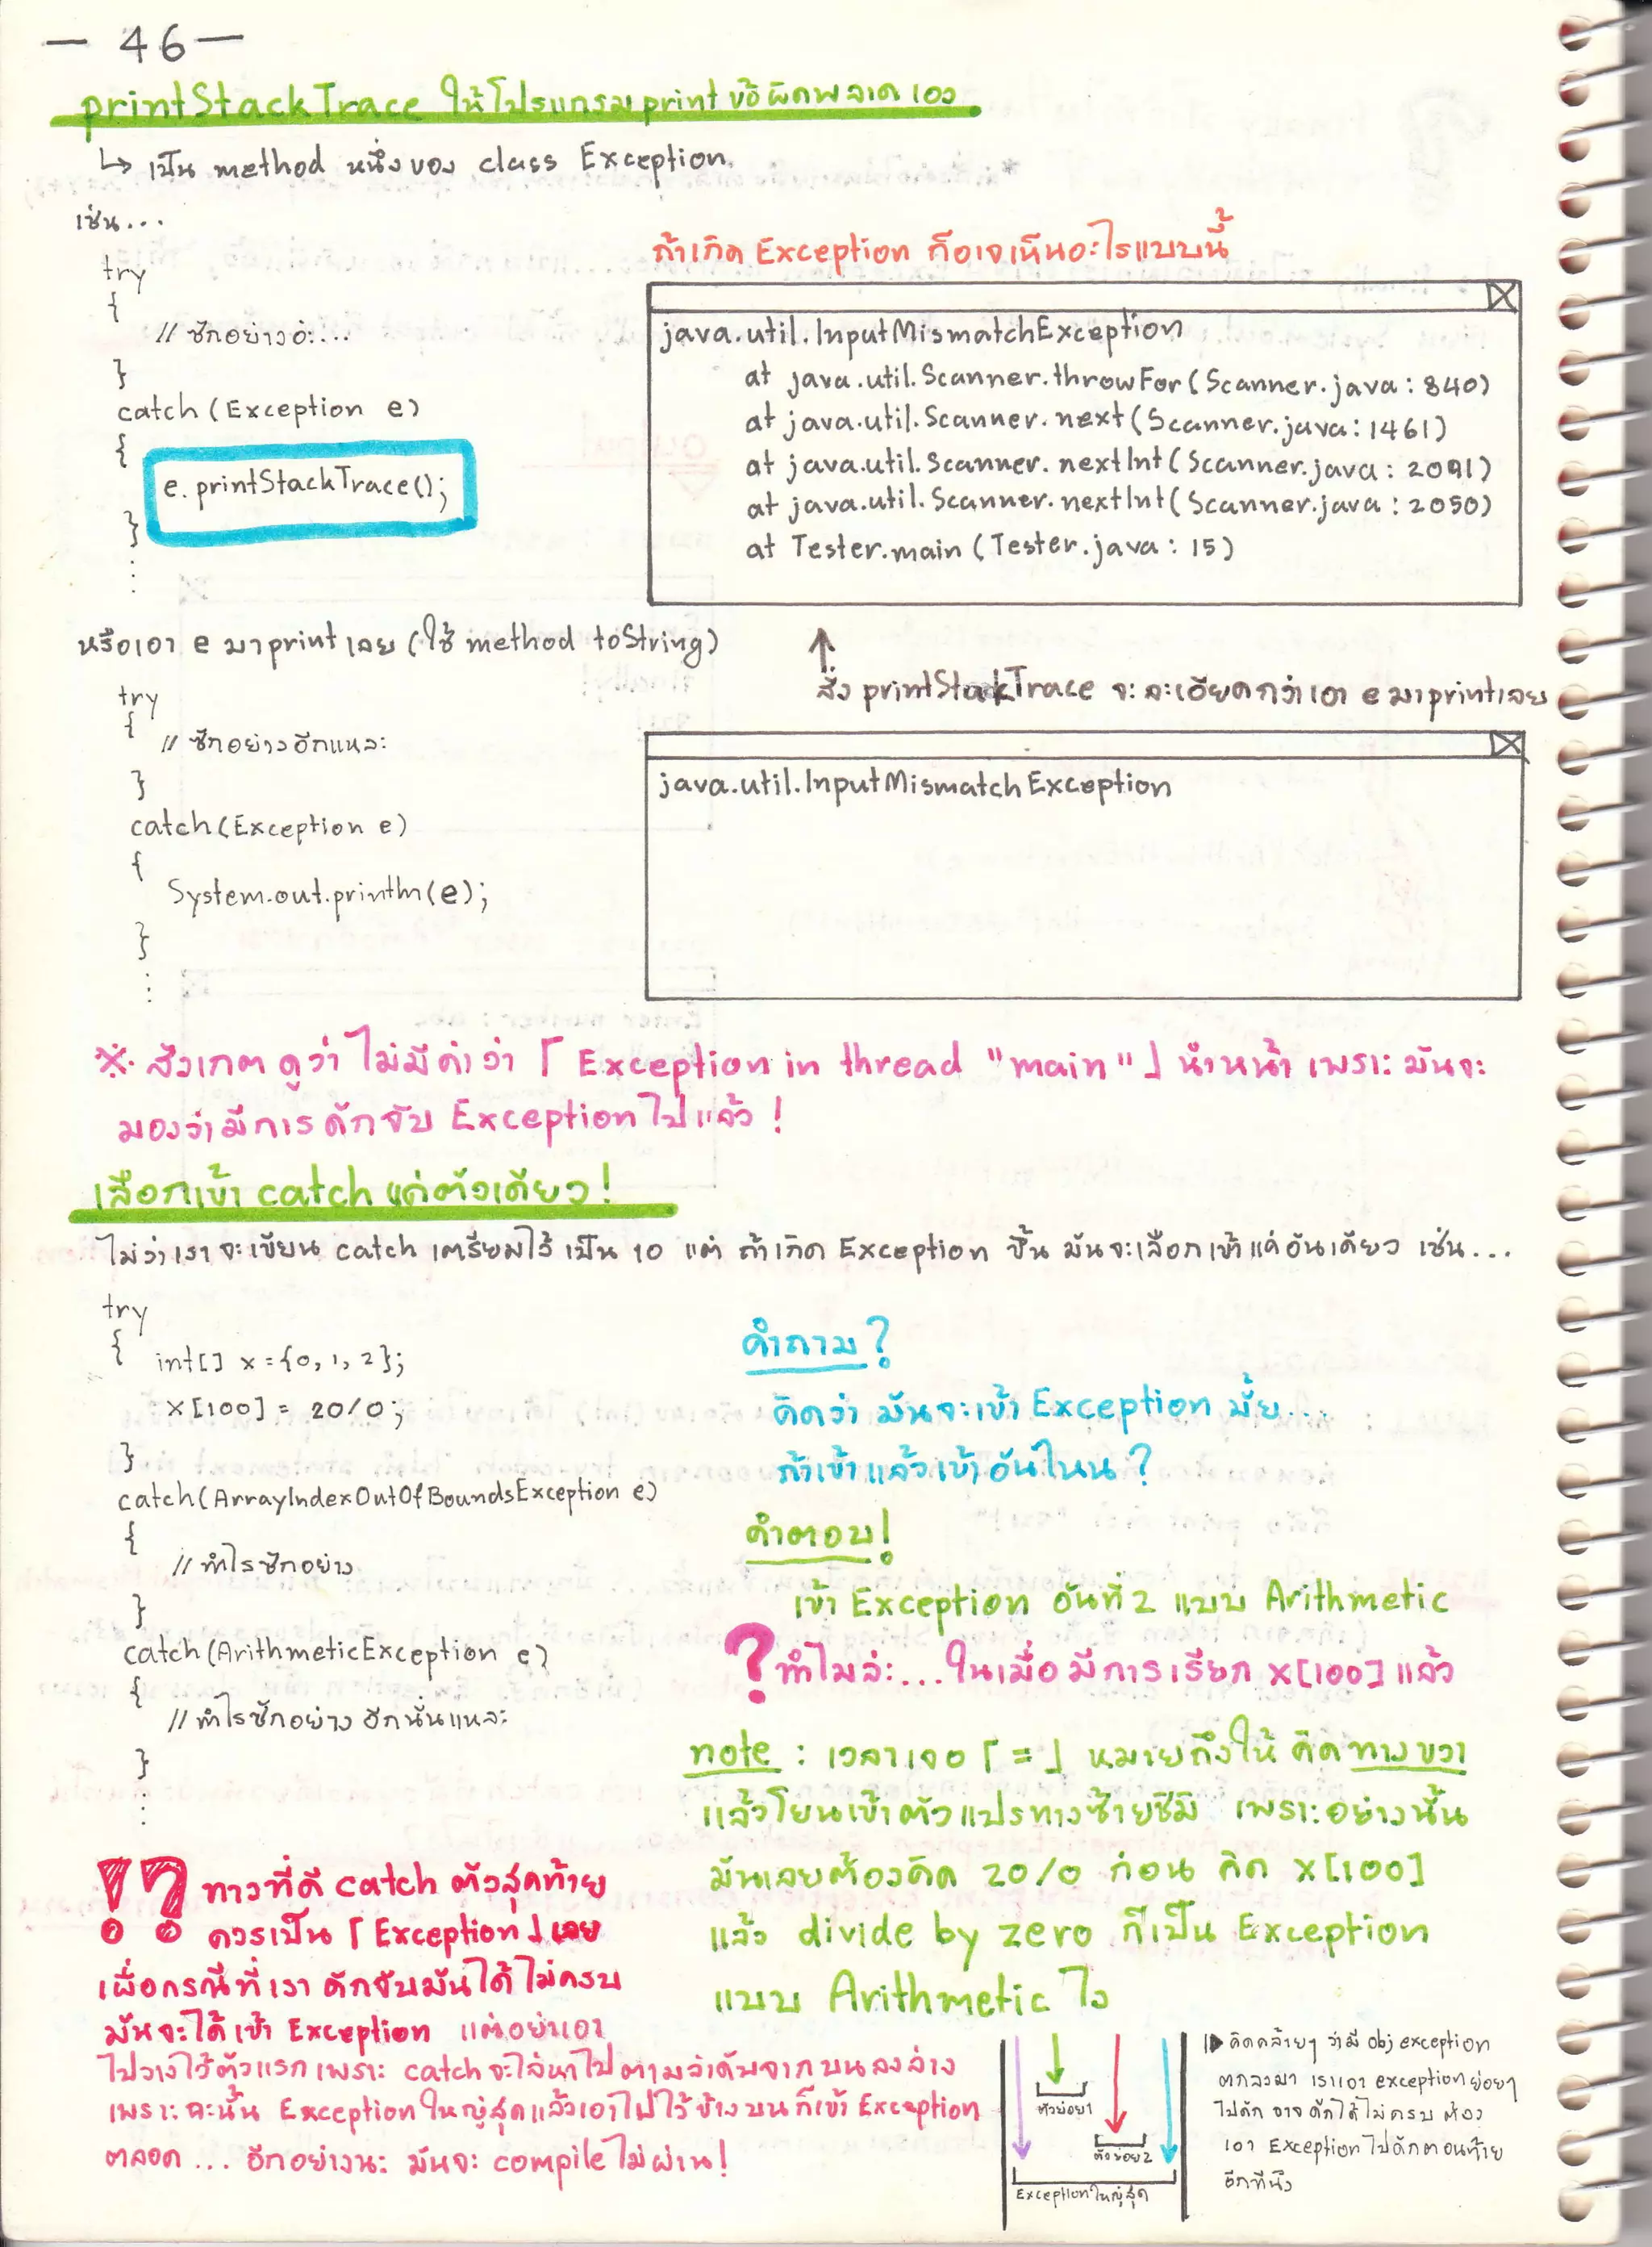 — 46 —
printStackTrace ให้โปรแกรม print ข้อผิดพลาดเอง
↳ เป็น method หนึ่งของ class Exception.
เช่น...
try
{
// ซักอย่างอ่ะ...
}
catch(Exception e)
{
e.printStackTrace();
}
⋮
ถ้าเกิด Exception ก็อาจเห็นอะไรแบบนี้
java.util.InputMismatchException
at java.util.Scanner.throwFor(Scanner.java:840)
at java.util.Scanner.next(Scanner.java:1461)
at java.util.Scanner.nextInt(Scanner.java:2091)
at java.util.Scanner.nextInt(Scanner.java:2050)
at Tester.main(Tester.java:15)
↑
สั่ง printStackTrace จะละเอียดกว่าเอา e มา print เลย
หรือเอา e มา print เลย (ใช้ method toString)
try
{
// ซักอย่างอีกแหละ
}
catch(Exception e)
{
System.out.println(e);
}
⋮
java.util.InputMismatchException
※ สังเกตดูว่า ไม่มีคำว่า「Exception in thread "main"」นำหน้า เพราะมันจะ
มองว่ามีการดักจับ Exception ไปแล้ว!
เลือกเข้า catch แค่ตัวเดียว!
ไม่ว่าเราจะเขียน catch เตรียมไว้ เป็น 10 แต่ ถ้าเกิด Exception ขึ้น มันจะเลือกเข้าแค่อันเดียว เช่น...
try
{
int[] x={0,1,2};
x[100] = 20/0;
}
catch(ArrayIndexOutOfBoundsException e)
{
// ทำไรซักอย่าง
}
catch(ArithmeticException e)
{
// ทำไรซักอย่าง อีกนั่นแหละ
}
⋮
คำถาม?
คิดว่า มันจะเข้า Exception มั้ย...
ถ้าเข้าแล้วเข้าอันไหน?
คำตอบ!
เข้า Exception อันที่ 2 แบบ Arithmetic
? ทำไมล่ะ...ในเมื่อ มีการเรียก x[100] แล้ว
note : เวลาเจอ「=」หมายถึงให้ คิดทางขวา
แล้วโยนเข้าตัวแปรทางซ้ายซิมิ เพราะอย่างนั้น
มันเลยต้องคิด 20/0 ก่อน คิด x[100]
แล้ว divide by zero ก็เป็น Exception
แบบ Arithmetic ไง
!? ทางที่ดี catch ตัวสุดท้าย
ควรเป็น「Exception」เลย
เผื่อกรณีที่เรา ดักจับมันได้ไม่ครบ
มันจะได้เข้า Exception แต่อย่าเอา
ไปวางไว้ตัวแรก เพราะ catch จะไล่หาไปตามลำดับจากบนลงล่าง
เพราะฉะนั้น Exception ใหญ่สุดแล้วเอาไปไว้ข้างบน ก็เข้า Exception
ตลอด ... อีกอย่างนะ มันจะ compile ไม่ผ่าน!
ตัวย่อย1
ตัวย่อย2
Exception ใหญ่สุด
คิดคล้ายๆ ว่ามี obj exception
ตกลงมา เราเอา exception ย่อยๆ
ไปดัก อาจดักได้ไม่ครบ ต้อง
เอา Exception ไปดักตอนท้าย
อีกทีนึง